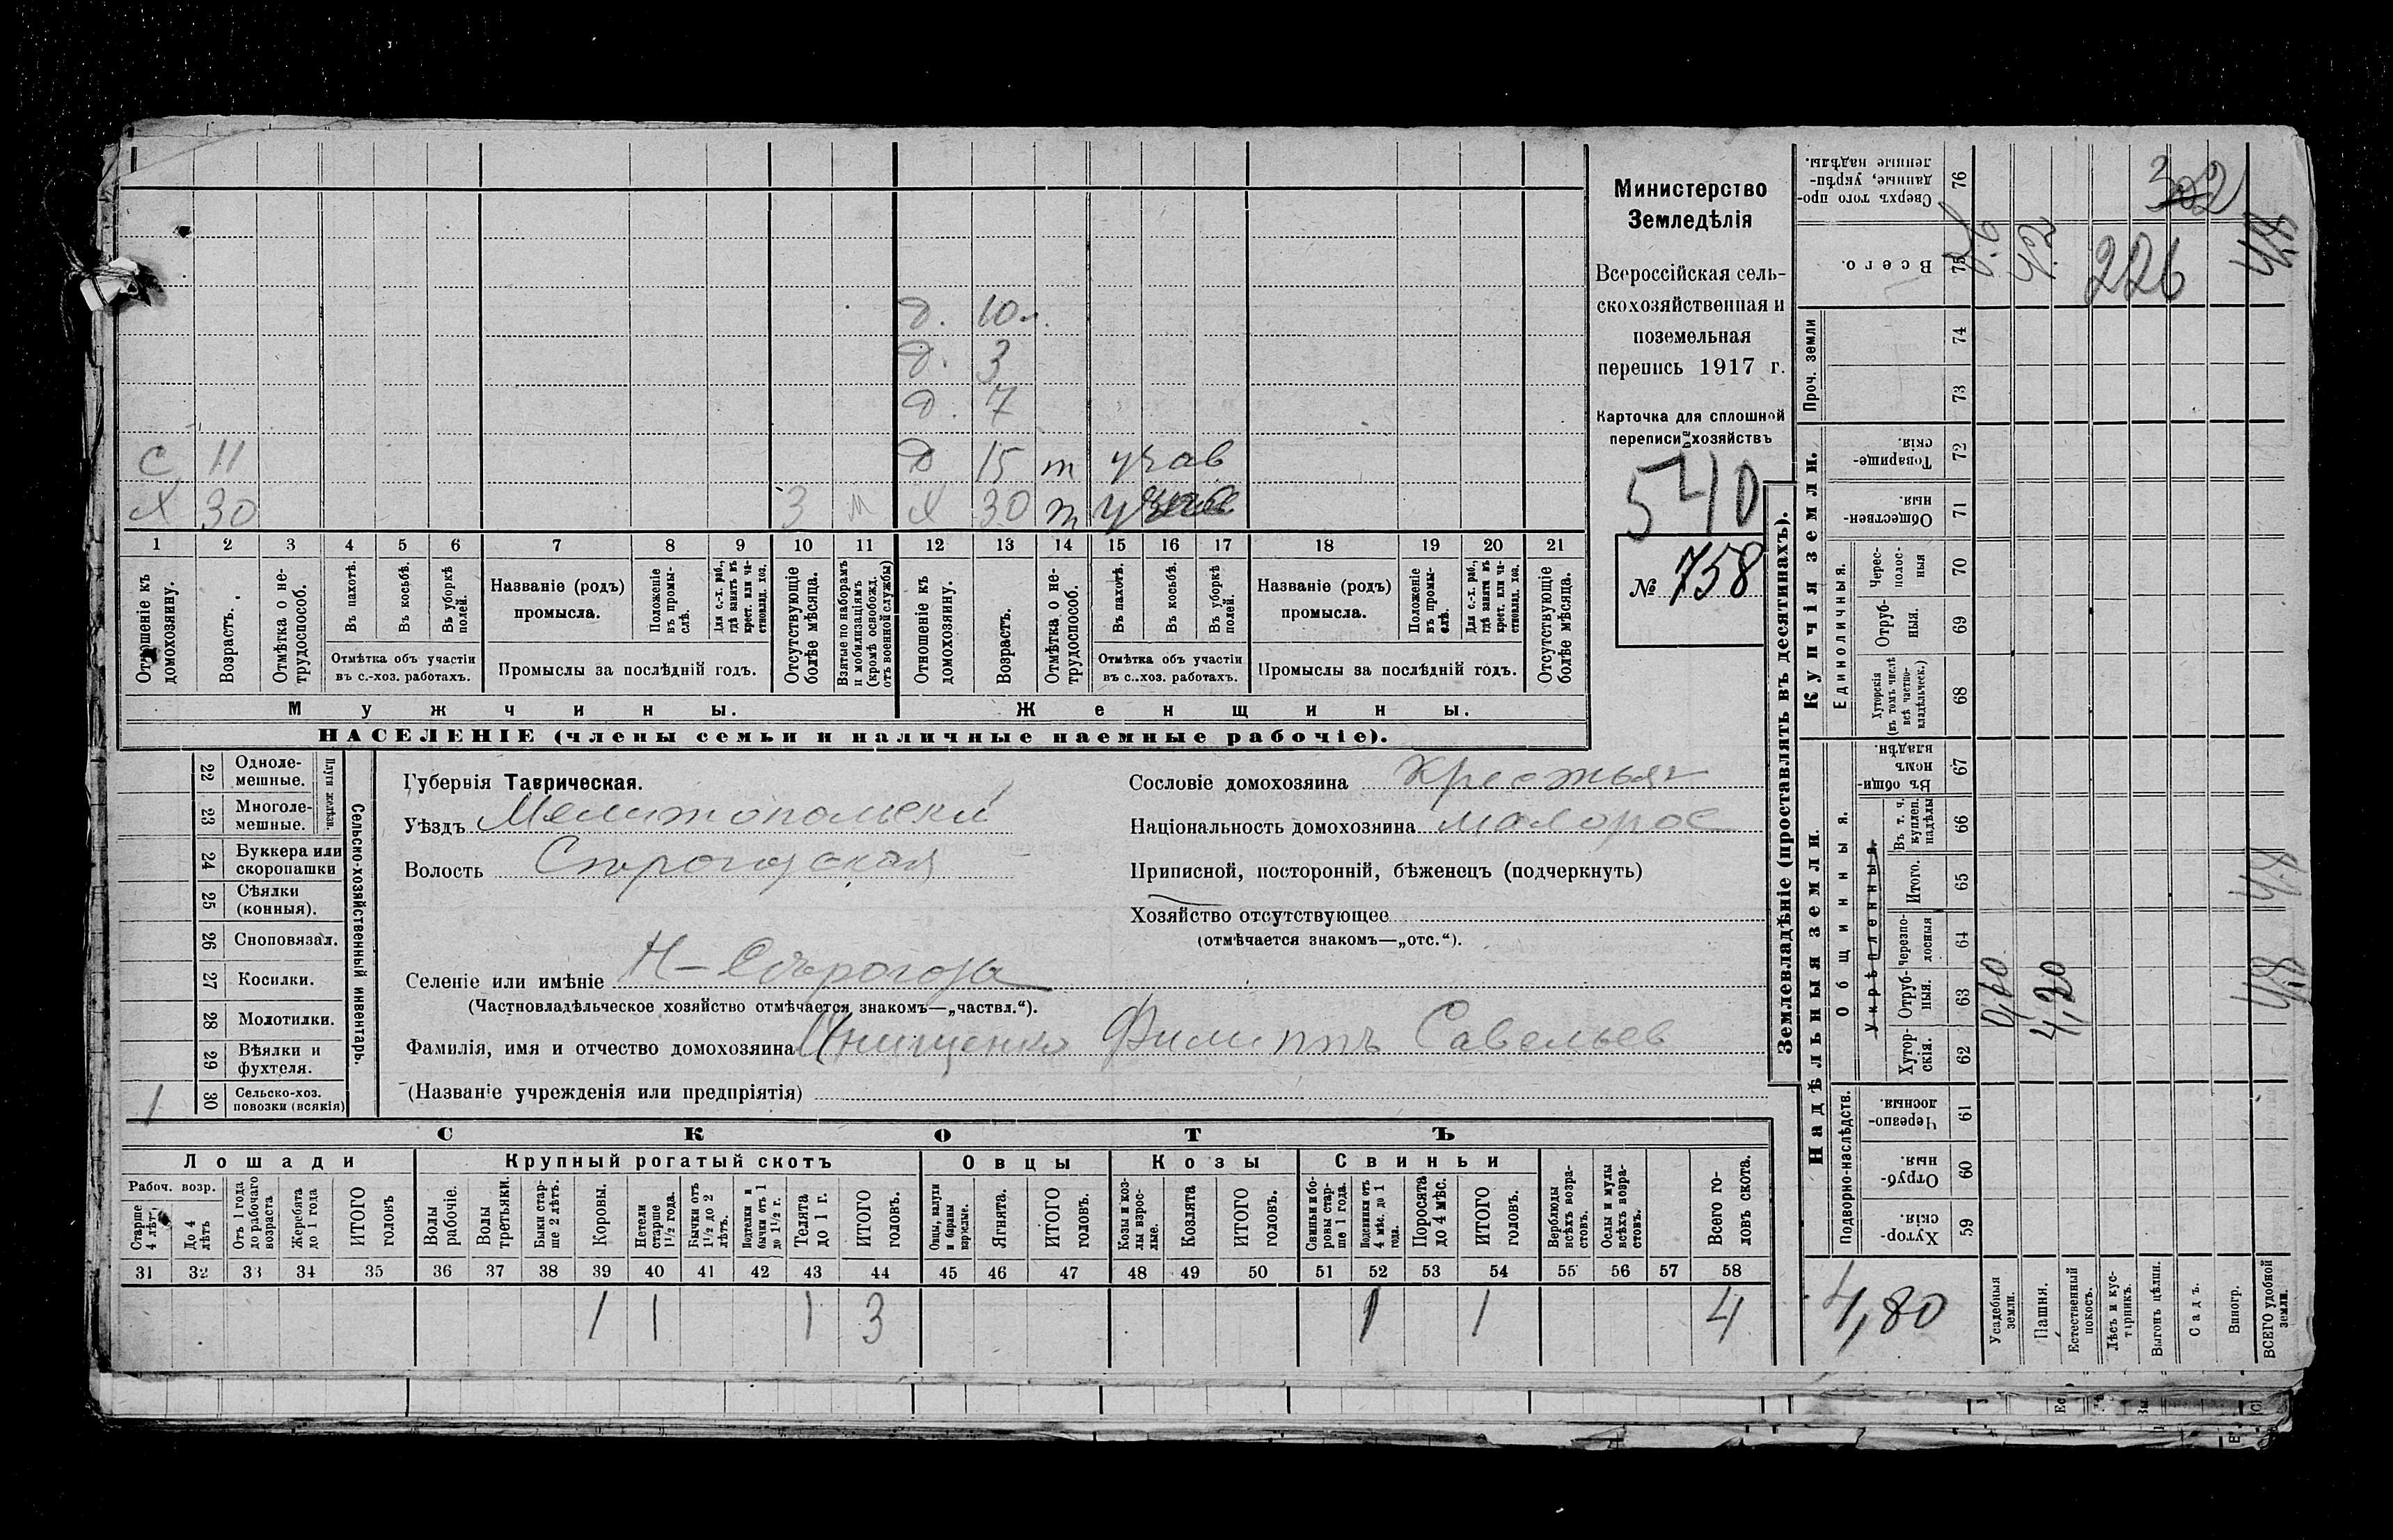 д. 10 л.
д. 3
д. 7
с 11 д 15 т учав
х 30 3 м х 30 т
1 2 3 4 5 6 7 8 9 10 11 12 13 14 15 16 17 18 19 20 21
Отношеніе къ домохозяину.
Возрастъ.
Отмѣтка о нетрудоспособ.
Въ пахотѣ.
Въ косьбѣ.
Въ уборкѣ полей.
Отмѣтка объ участіи въ с.-хоз. работахъ.
Названіе (родъ) промысла.
Положеніе въ промыслѣ.
Для с.-х. раб., гдѣ занятъ въ крест. или частновлад. хоз.
Промыслы за послѣдній годъ.
Отсутствующіе болѣе мѣсяца.
Взятые по наборамъ и мобилизаціямъ (кромѣ освобожд. отъ военной службы)
Отношеніе къ домохозяину.
Возрастъ.
Отмѣтка о нетрудоспособ.
Въ пахотѣ.
Въ косьбѣ.
Въ уборкѣ полей.
Отмѣтка объ участіи въ с.-хоз. работахъ.
Названіе (родъ) промысла.
Положеніе въ промыслѣ.
Для с.-х. раб., гдѣ занятъ въ крест. или частновлад. хоз.
Промыслы за послѣдній годъ.
Отсутствующіе болѣе мѣсяца.
Мужчины. Женщины.
НАСЕЛЕНІЕ (члены семьи и наличные наемные рабочіе).
Министерство
Земледѣлія
Всероссійская сель-
скохозяйственная и
поземельная
перепись 1917 г.
Карточка для сплошной
переписи хозяйствъ
540
№ 758
22 Одноле-
мешные.
23 Многоле-
мешные.
Плуги желѣзн.
24 Буккера или
скоропашки
25 Сѣялки
(конныя).
26 Сноповязал.
27 Косилки.
28 Молотилки.
29 Вѣялки и
фухтеля.
1 30 Сельско-хоз.
повозки (всякія)
Сельско-хозяйственный инвентарь.
Губернія Таврическая.
Уѣздъ Мелитопольскій
Волость
Селеніе или имѣніе Н-Сѣрогозы
(Частновладѣльческое хозяйство отмѣчается знакомъ—„частвл.“).
Фамилія, имя и отчество домохозяина Онищенко Филиппъ Савельев
(Названіе учрежденія или предпріятія)
Сословіе домохозяина Крестьян
Національность домохозяина малорос
Приписной, посторонній, бѣженецъ (подчеркнуть)
Хозяйство отсутствующее
(отмѣчается знакомъ—„отс.“).
СКОТЪ
Лошади Крупный рогатый скотъ Овцы Козы Свиньи
Рабоч. возр.
Старше 4 лѣт.
До 4 лѣтъ
Отъ 1 года до рабочаго возраста
Жеребята до 1 года
ИТОГО головъ
Волы рабочіе.
Волы третьяки.
Быки старше 2 лѣтъ.
Коровы.
Нетели старше 1½ года.
Бычки отъ 1½ до 2 лѣтъ.
Подтелки и бычки отъ 1 до 1½ г.
Телята до 1 г.
ИТОГО головъ.
Овцы, валухи и бараны взрослые.
Ягнята.
ИТОГО головъ.
Козы и козлы взрослые.
Козлята
ИТОГО головъ.
Свиньи и боровы старше 1 года.
Подсвинки отъ 4 мѣс. до 1 года.
Поросята до 4 мѣс.
ИТОГО головъ.
Верблюды всѣхъ возрастовъ.
Ослы и мулы всѣхъ возрастовъ.
Всего головъ скота.
31 32 33 34 35 36 37 38 39 40 41 42 43 44 45 46 47 48 49 50 51 52 53 54 55 56 57 58
1 1 1 3 1 1 4
Землевладѣніе (проставлять въ десятинахъ).
Купчія земли.
Надѣльныя земли.
Проч. земли
Единоличныя.
Общинныя.
Укрѣпленныя.
Подворно-наслѣдств.
Сверхъ того проданные, укрѣпленные надѣлы. 76
Всего. 75
74
73
Товарищескія. 72
Общественныя. 71
Чересполосныя 70
Отрубныя. 69
Хуторскія (въ томъ числѣ всѣ частновладѣльческ.) 68
Въ общинномъ владѣн. 67
Въ т. ч. куплен. надѣлы 66
Итого. 65
Черезполосныя 64
Отрубныя. 63
Хуторскія. 62
Черезполосныя. 61
Отрубныя. 60
Хуторскія. 59
0,60
4,20
226
302
4,8
4,8
4,8
0.6
4,2
4,80
Усадебныя земли.
Пашня.
Естественный покосъ.
Лѣсъ и кустарникъ.
Выгонъ цѣлин.
Садъ.
Виногр.
ВСЕГО удобной земли.